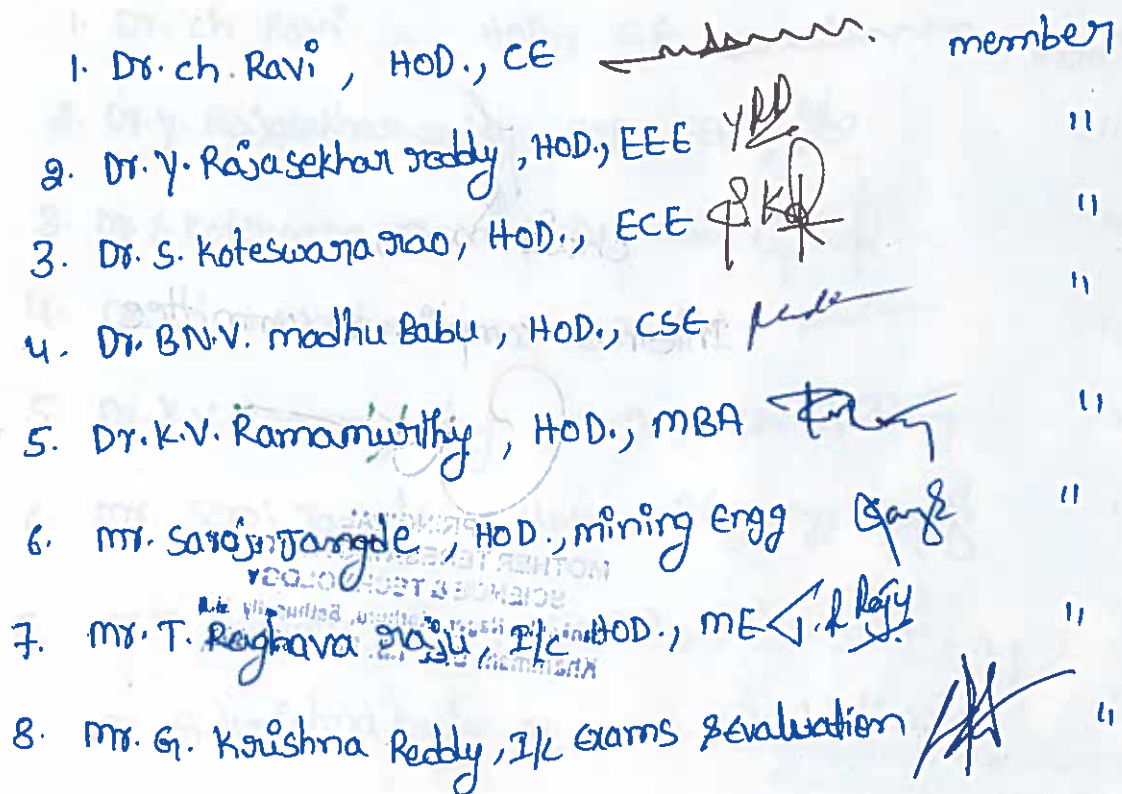 1. Dr. ch. Ravi , HOD., CE member
2. Dr. Y. Rajasekhar reddy , HOD., EEE YRR "
3. Dr. S. Koteswara rao, HOD., ECE "
4. Dr. B.N.V. madhu Babu, HOD., CSE "
5. Dr. K.V. Ramamurthy , HOD., MBA "
6. mr. Saroj Jangde , HOD., mining Engg "
7. mr. T. Raghava raju, I/c HOD., ME "
8. mr. G. Krishna Reddy, I/c Exams & Evaluation "